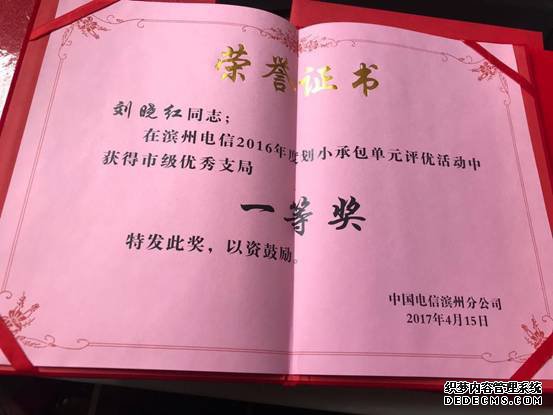 荣誉证书
刘晓红同志；
在滨州电信2016年度划小承包单元评优活动中
获得市级优秀支局
一等奖
特发此奖，以资鼓励。
中国电信滨州分公司
2017年4月15日
织梦内容管理系统
DEDECMS.COM